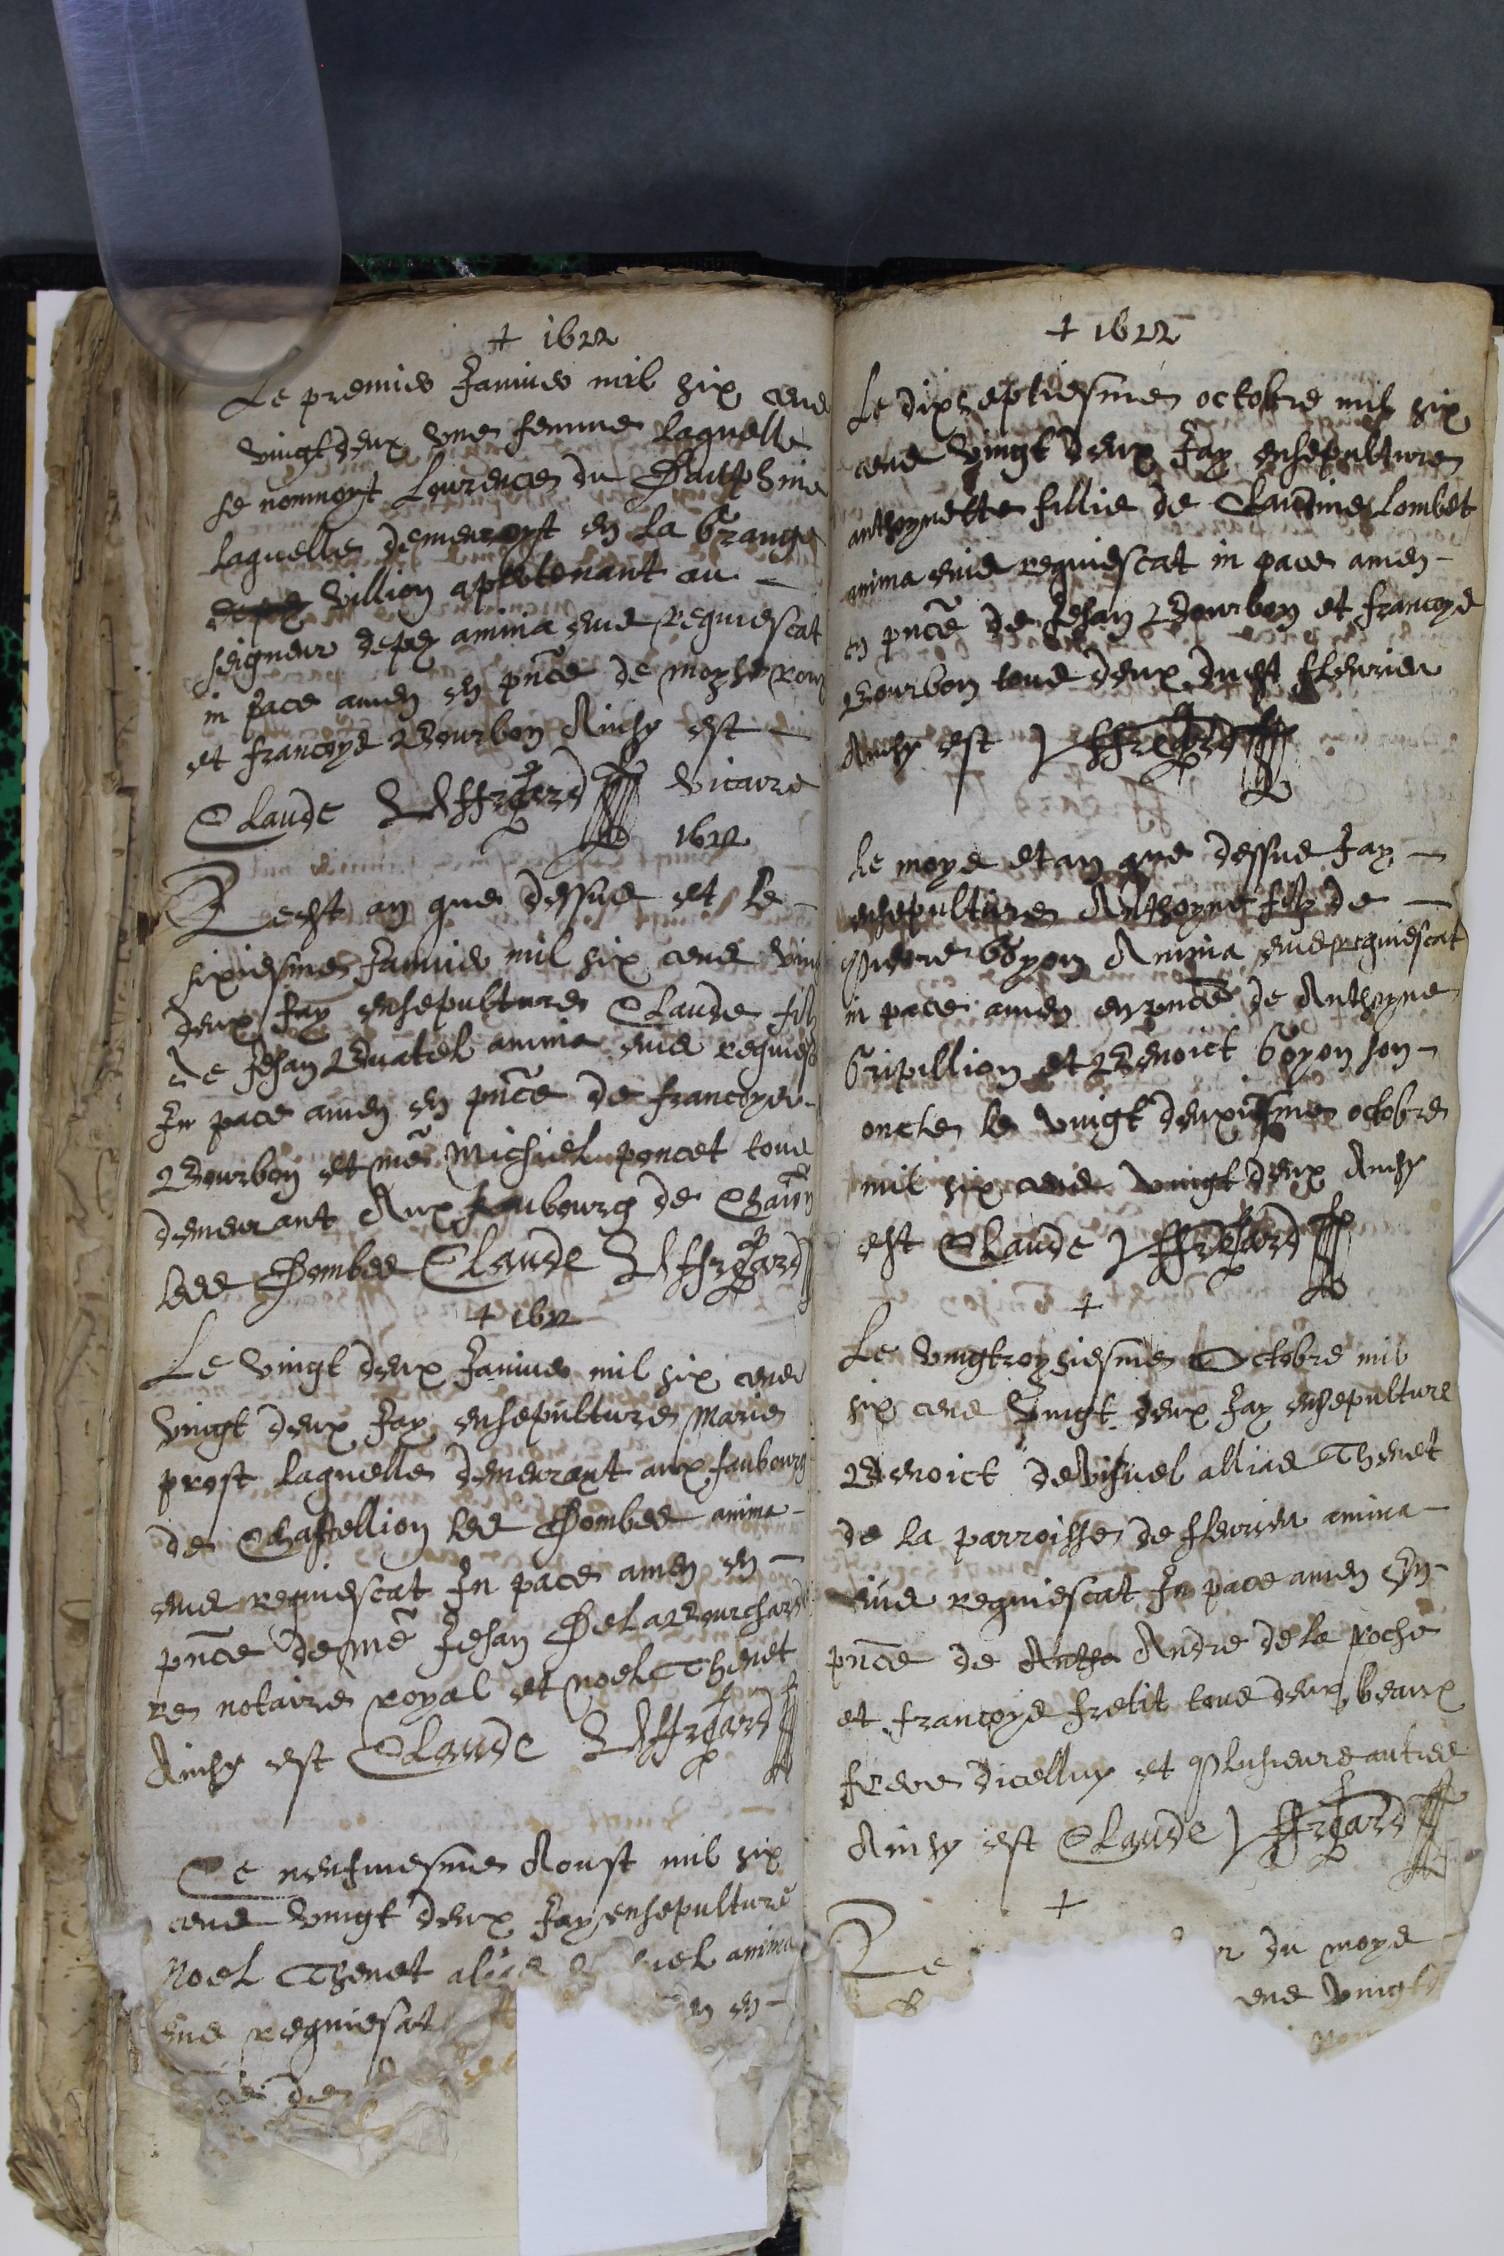 + 1622
Le premier Janvier mil six cens
vingt deux une femme laquelle
se nommoyt Lourence du Dauphine
laquelle demeuroyt en la Grange
villion apartenant au -
seigneur depez anima eius requiescat
in pace amen en pnce de
et francoys Bourbon Ainsy est -
Claude vicaire
1622
Le cest an que dessus et le -
sixiesme Janvier mil six cens vin
deux Jay ensepulture Claude filz
de Jehan Buatel anima eius requiesc
In pace amen en pnce de francoys -
Bourbon et me Michiel poncet tous
demeurant Aux faubourg de
les Dombes Claude
+ 1622
Le vingt deux Janvier mil six cens
vingt deux Jay ensepulture Marie
prost laquelle demeurant aux faubourg
de Chastellion les Dombes anima -
eius requiescat In pace amen en -
pnce de me Jehan Delabourchard
re notaire royal et noel Thenet
Ainsy est Claude
Le neufviesme Aoust mil six
cens vingt deux Jay ensepulture
Noel Thenet alias anima
eius requiescat en -
de
+ 1622
Le dixseptiesme octobre mil six
cens vingt deux Jay ensepulture
anthoynette fillie de Claudine Lombet
anima eius requiescat in pace amen -
en pnce de Jehan Bourbon et francoys
Bourbon tous deux dudt fleurieu
Ainsy est
Le moys et an que dessus Jay -
ensepulture Anthoyne filz de -
pierre Goyon Anima eius requiescat
in pace amen en pnce de Anthoyne
Gripillion et Benoict Goyon son -
oncle le vingt deuxiesme octobre
mil six cens vingt deux Ainsy
est Claude
+
Le vingtroysiesme Octobre mil
six cens vingt deux Jay ensepulture
Benoict alias Thenet
de la parroisse de fleurieu anima -
eius requiescat In pace amen En -
pnce de Andre de la roche
et francoys fretit tous deux beaux
frere dicelluy et plusieurs autres
Ainsy est Claude
+
Le du moys
ens vingt